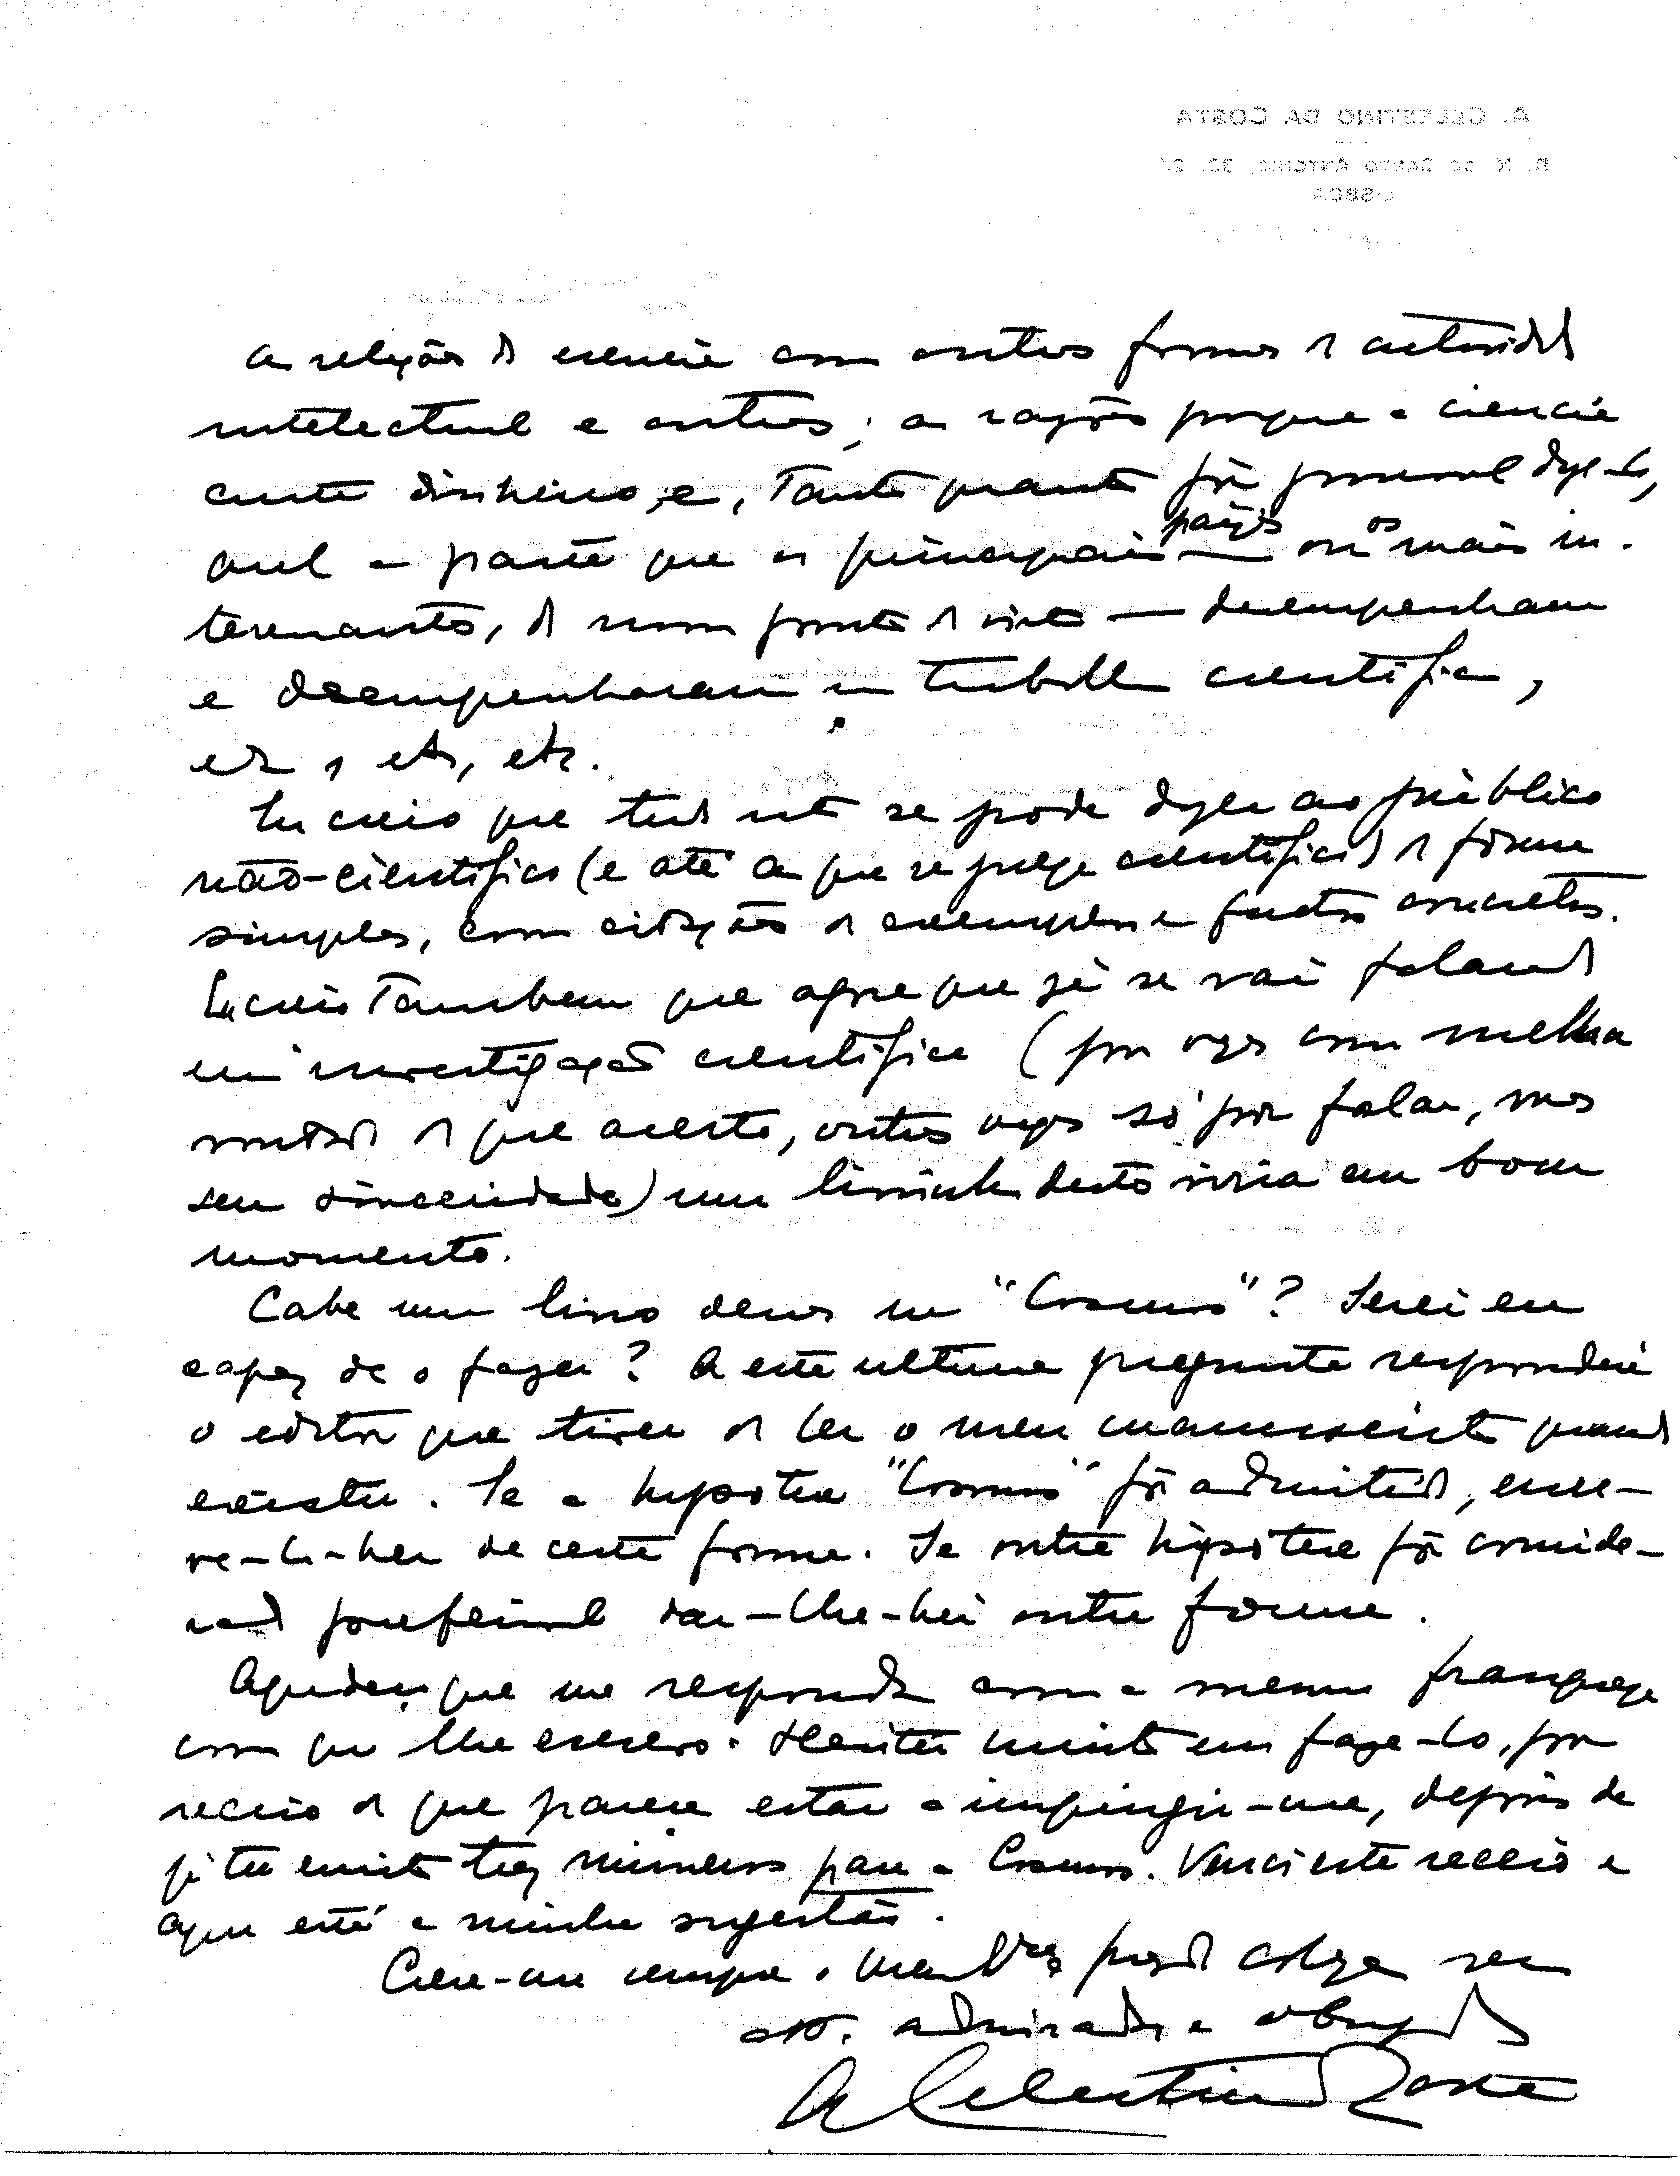 A. CELESTINO DA COSTA
LISBOA
as relações da ciencia com outras formas de actividade
intelectual e outras; as razões porque a ciencia
custa dinheiro, e, tanto quanto fôr possivel dize-lo,
qual a parte que os principais países — ou os mais in-
teressantes, do nosso ponto de vista — desempenham
e desempenharam no trabalho cientifico,
etc, etc, etc.
Eu creio que tudo isto se pode dizer ao público
não-cientifico (e até ao que se julga cientifico) de forma
simples, com citações de exemplos e factos concretos.
Eu creio tambem que agora que já se vai falando
em investigação cientifica (por vezes com melhor
vontade do que acerto, outras vezes só por falar, mas
sem sinceridade) um livrinho destes viria em bom
momento.
Cabe um livro desses na "Cosmos"? Serei eu
capaz de o fazer? A esta ultima pregunta responderá
o editor que tiver de ler o meu manuscrito quando
existir. Se a hipotese "Cosmos" fôr admitida, escre-
ve-lo-hei de certa forma. Se outra hipótese fôr conside-
rada preferivel dar-lhe-hei outra forma.
Agradeço que me responda com a mesma franqueza
com que lhe escrevo. Hesitei muito em faze-lo, por
receio de que parecesse estar a impingir-me, depois de
já ter escrito tres números para a Cosmos. Venci este receio e
aqui está a minha sugestão.
Creia-me sempre, meu prezado colega seu
att. admirador e obrigado
A Celestino da Costa